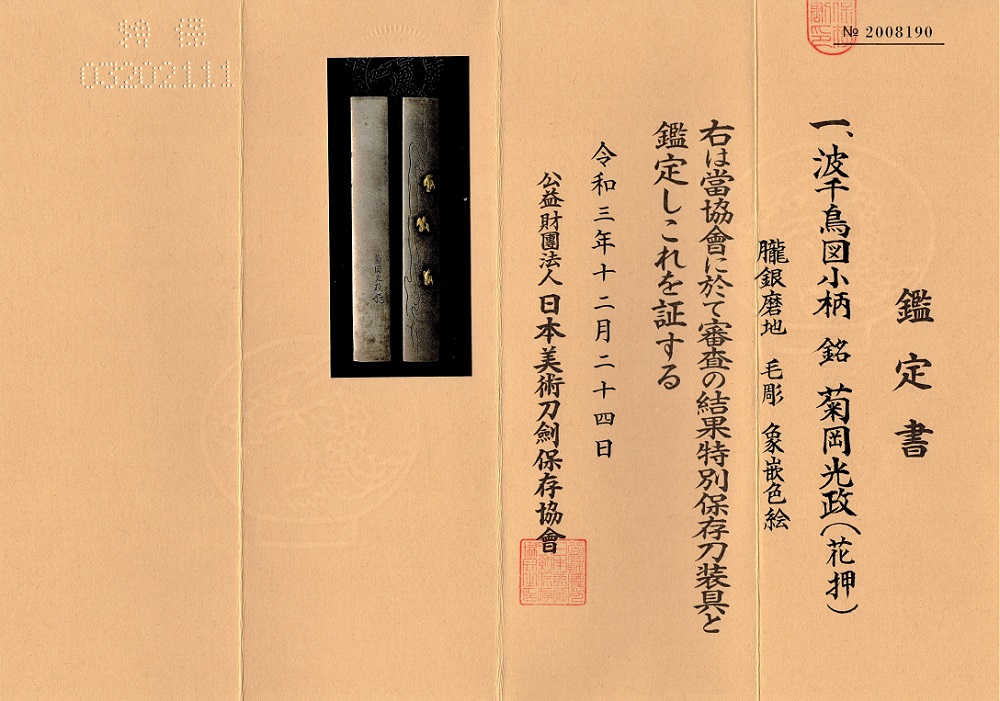 № 2008190
鑑定書
一、波千鳥図小柄 銘 菊岡光政(花押)
朧銀磨地 毛彫 象嵌色絵
右は當協會に於て審査の結果特別保存刀装具と
鑑定しこれを証する
令和三年十二月二十四日
公益財團法人 日本美術刀劍保存協會
特保
03202111